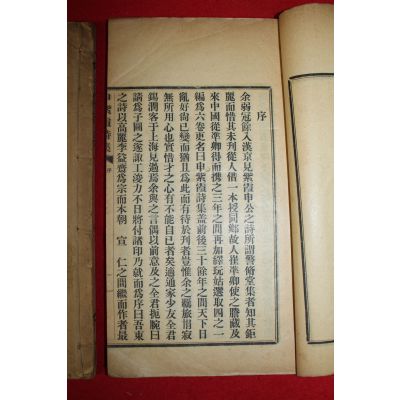 序
余弱冠餘入漢京見紫霞申公之詩所謂警修堂集者知其鉅
麗而惜其未刊從人借一本授同鄉故人崔準卿使之謄藏及
來中國從準卿得而攜之三年之間再加繹玩姑選取四之一
編爲六卷更名曰申紫霞詩集盖前後三十餘年之間天下日
亂好尙已變而猶且爲此而有待於列者豈惟余之羈旅涓寂
無所用心也實惜才之心有不能自已者矣適通家少友全君
錫潤客于上海見過爲余與之言偶以前意及之全君扼腕曰
請爲子圖之遂諏工浚力不日將付諸印乃就而爲序曰吾東
之詩以高麗李益齋爲宗而本朝 宣 仁之間繼而作者最